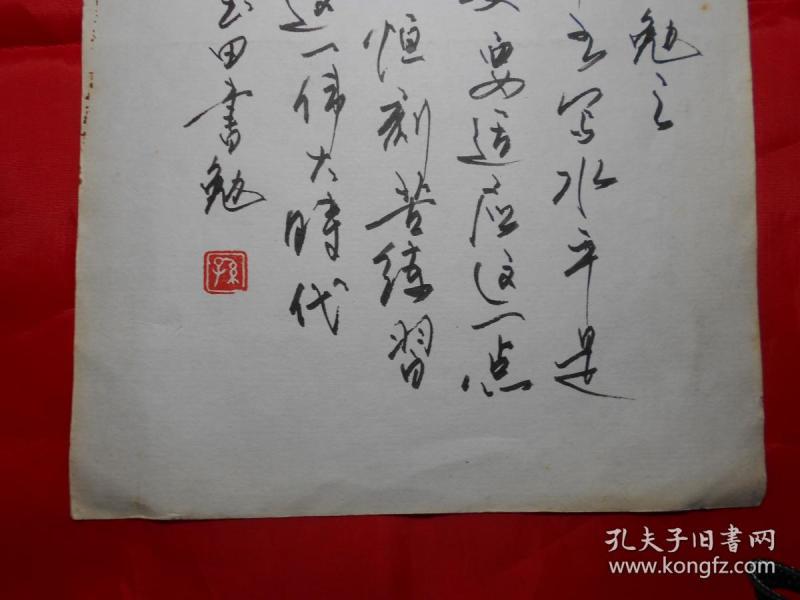 勉之
书写水平是
要适应这一点
恒刻苦练習
这一伟大時代
玉田书勉
孫
孔夫子旧書网
www.kongfz.com